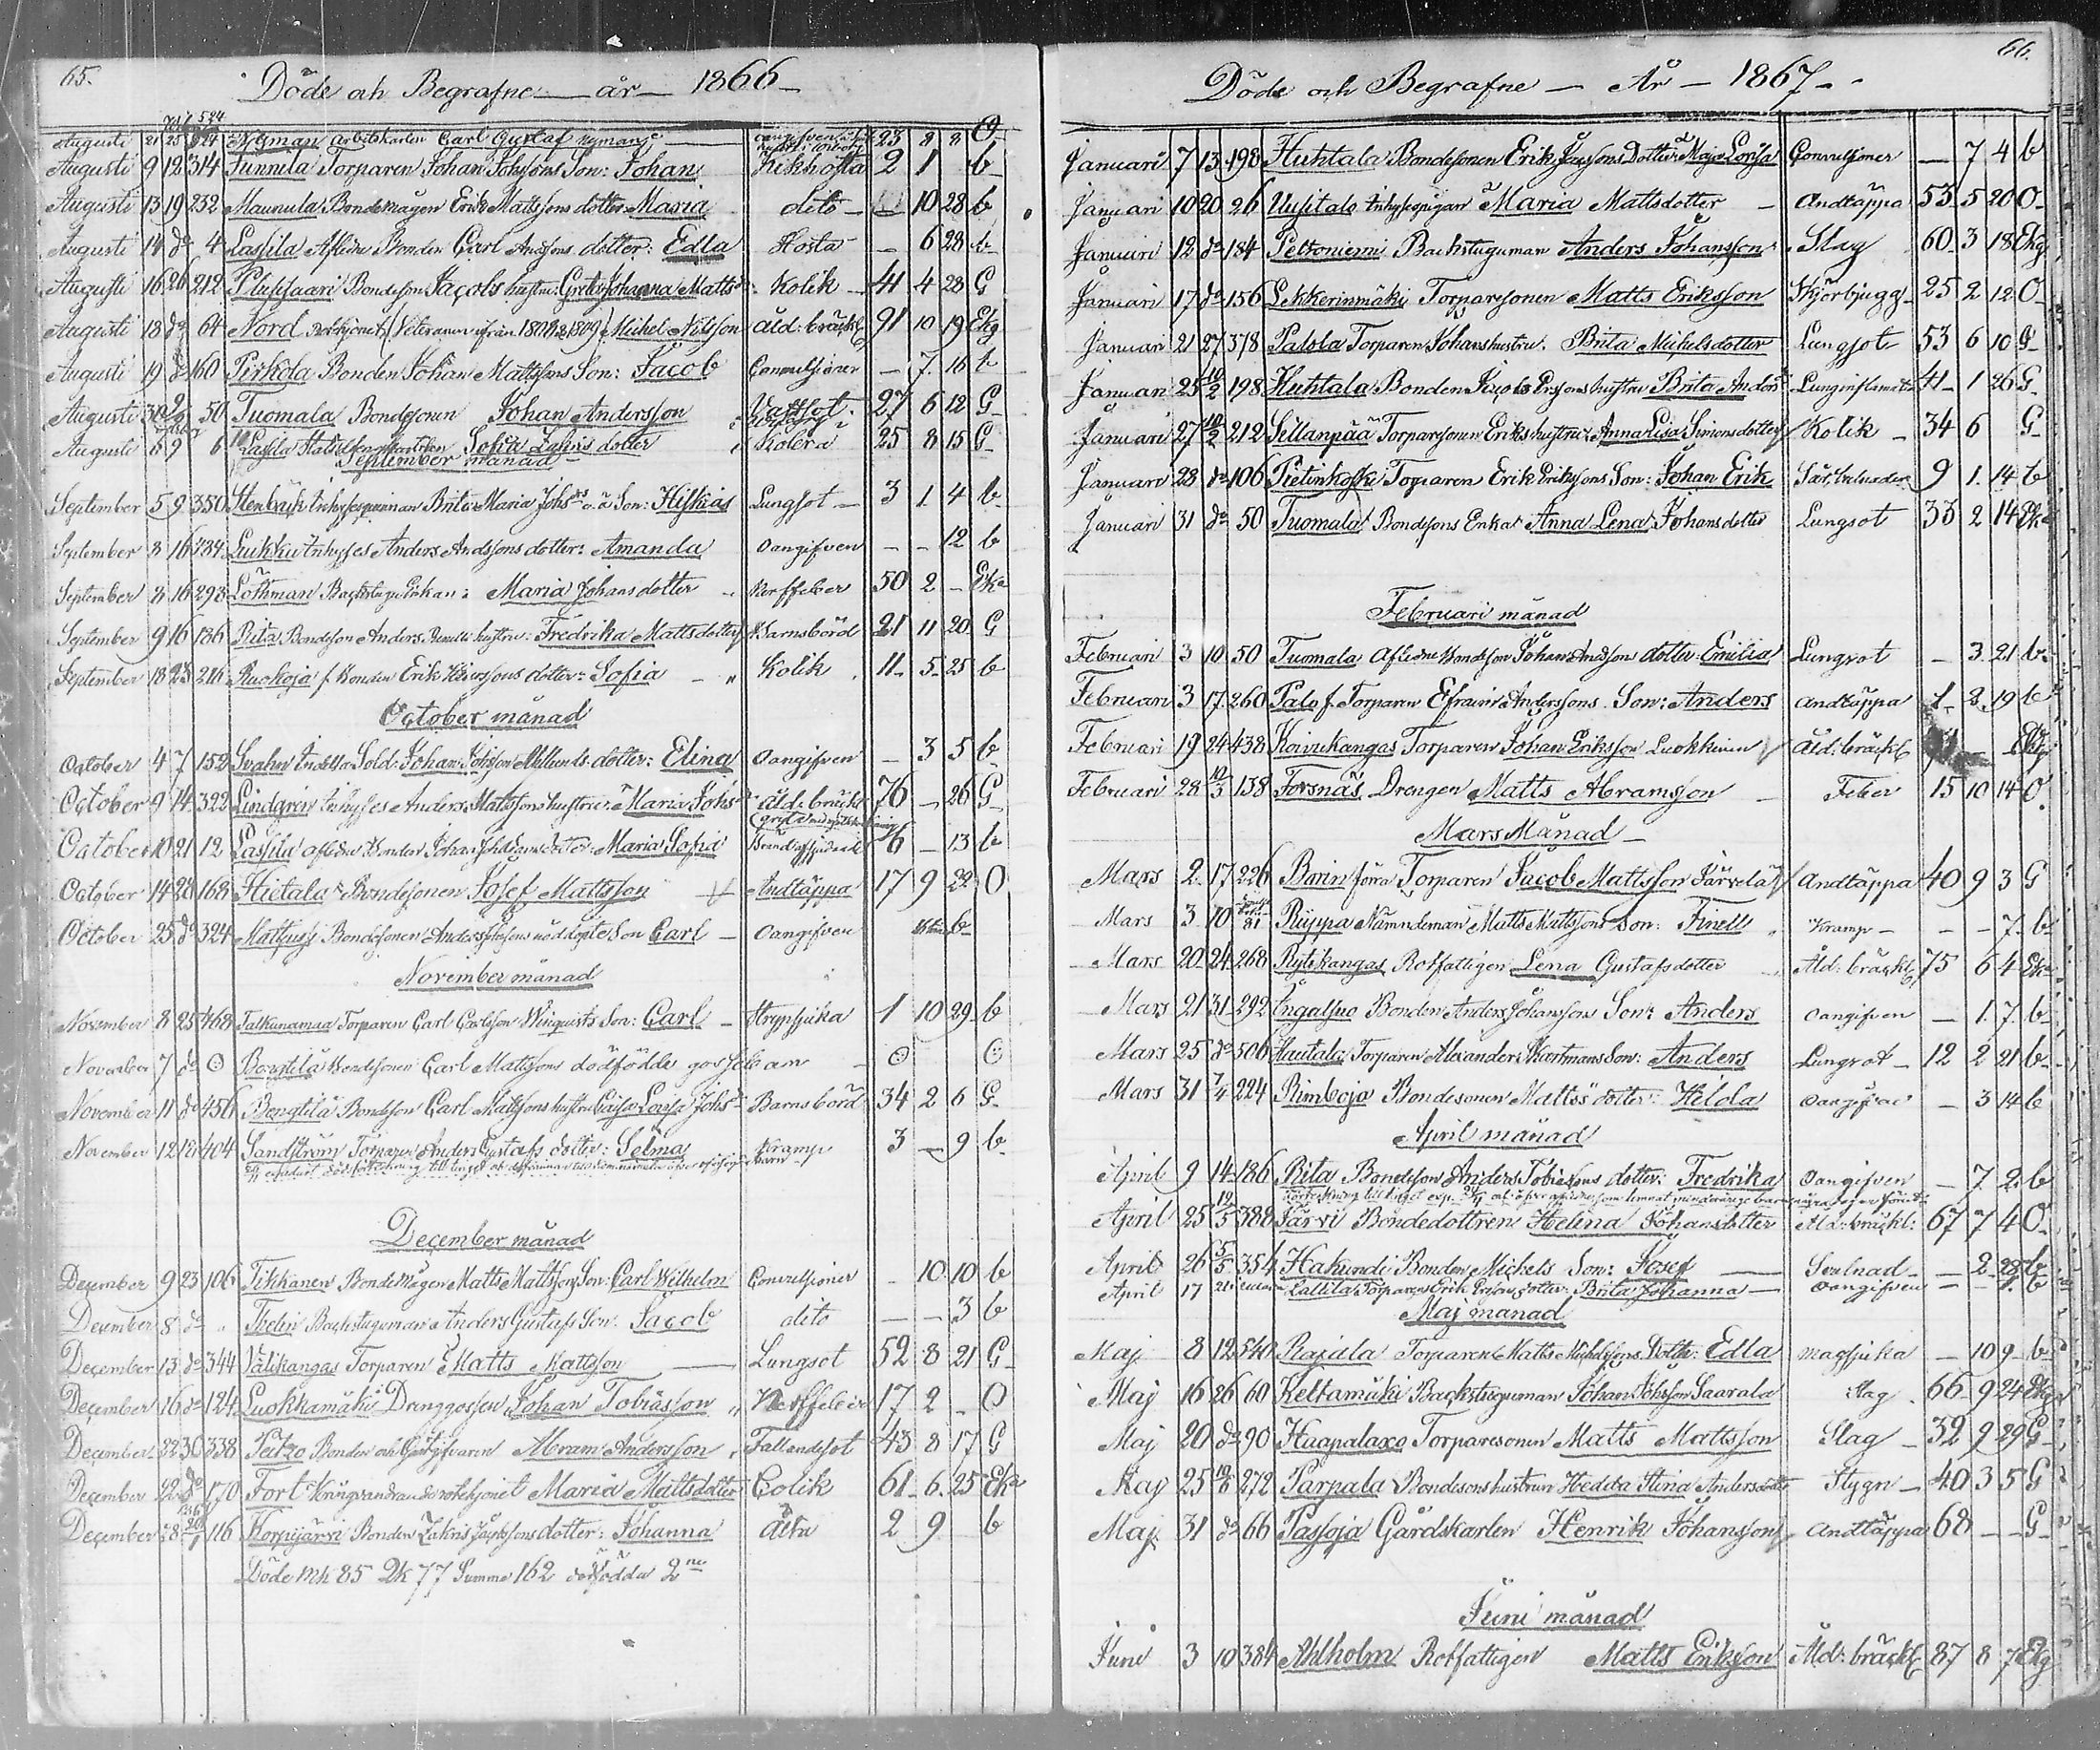 65.
Döde och Begrafne — år — 1866 —
Augusti 21 25 624 Nyman arbetskarlen Carl Gustaf Nyman 23 8 8 O
Augusti 9 12 314 Funnila Torparen Johan Johssons Son: Johan Kikhosta 2 1 b
Augusti 13 19 232 Maunula Bondemågen Erik Mattssons dotter Maria dito — 10 28 b
Augusti 14 do 4 Lassila Aflidne Bonden Carl Andssons dotter: Edla Hosta — 6 28 b
Augusti 16 26 212 Bondeson Jacobs hustru: Greta Johanna Mattsdr Kolik 41 4 28 G
Augusti 18 do 64 Nord Rotehjonet (Veteranen ifrån 1808 & 1809) Michel Nilsson åld: bräckl 91 10 19 Ekg
Augusti 19 do 160 Pirkola Bonden Johan Mattssons Son: Jacob Convulsioner — 7 16 b
Augusti 30 50 Tuomala Bondesonen Johan Andersson Vattsot 27 6 12 G
Augusti 6 9 6 Lassila Sofia Zakris dotter Kolera 25 8 15 G
September månad
September 5 9 350 Stenbäck Inhysespigan Brita Maria Johsdrs o.ä Son: Hiskias Lungsot — 3 1 4 b
September 8 16 484 Luikku Inhyses Anders Andssons dotter: Amanda Oangifven — — 12 b
September 8 16 298 Löthman Backstuguenkan: Maria Johansdotter Nerffeber 50 2 — Eka
September 9 16 186 Rita Bondeson Anders hustru: Fredrika Mattsdotter Barnsbörd 21 11 20 G
September 18 23 216 Ruokoja f. Bonden Erik dotter: Sofia — " Kolik 11 5 25 b
October månad
October 4 7 152 Svahn Indelta Sold. Johan Johsson dotter: Elina Oangifven — 3 5 b
October 9 14 322 Lindgrén Inhyses Anders Mattssons hustru: Maria Johsdr åld: bräckl 76 — 26 G
October 10 21 12 Lassila aflidne Bonden Johan dotter: Maria Sofia 6 — 13 b
October 14 28 168 Hietala Bondesonen Josef Mattsson Andtäppa 17 9 22 O
October 25 do 324 Mattjussi Bondesonen Anders nöddöpte Son Carl — Oangifven b
November månad
November 8 25 468 Talkunamaa Torparen Carl Carlsson Winquists Son: Carl — Strypsjuka 1 10 29 b
November 7 do O Bengtilä Bondesonen Carl Mattssons dödfödde gossebarn
November 11 do 456 Bengtilä Bondeson Carl Mattssons hustru Caisa Lovisa Johsdr Barnsbörd 34 2 6 G
November 12 18 404 Sandström Torparen Anders Gustafs dotter: Selma Kramp 3 — 9 b
December månad
December 9 23 106 Tikkanen Bondemågen Matts Mattssons Son: Carl Wilhelm Convulsioner — 10 10 b
December 8 do " Thelin Backstuguman Anders Gustafs Son: Jacob dito — — 3 b
December 13 do 344 Välikangas Torparen Matts Mattsson — Lungsot 52 8 21 G
December 16 do 124 Luokkamäki Drenggossen Johan Tobiasson " Nerffeber 17 2 — O
December 22 30 338 Peitzo Bonden och Gästgifvaren Abram Andersson Fallandesot 43 8 17 G
December 22 do 170 Fort Kringvandrande rotehjonet Maria Mattsdotter Colik 61 6 25 Eka
December 28 116 Korpijärvi Bonden Zakris dotter: Johanna dito 2 9 b
Döde Mk 85 Qk 77 Summa 162 dödfödda 2ne
66.
Döde och Begrafne — År — 1867 —
Januari 7 13 198 Huhtala Bondesonen Erik Jacssons Dotter: Maja Lovisa Convulsioner — 7 4 b
Januari 10 20 26 Uusitalo Inhysespigan Maria Mattsdotter — Andtäppa 53 5 20 O
Januari 12 do 184 Peltoniemi Backstuguman Anders Johansson Slag 60 3 18 Ekg
Januari 17 do 156 Lekkerinmäki Torparesonen Matts Eriksson Skjörbjugg 25 2 12 O
Januari 21 27 378 Palola Torparen Johans hustru: Brita Michelsdotter Lungsot 53 6 10 G
Januari 25 10/2 198 Huhtala Bonden Jacobs hustru Brita Andersdr Lunginflamation 41 — 1 26 G
Januari 27 10/2 212 Sillanpää Torparesonen Eriks hustru Anna Lisa Simonsdotter Kolik — 34 6 G
Januari 28 do 106 Pietinkoski Torparen Erik Erikssons Son: Johan Erik 9 1 14 b
Januari 31 do 50 Tuomala Bondesons Enka Anna Lena Johansdotter Lungsot 33 2 14 Eka
Februari månad
Februari 3 10 50 Tuomala Aflidne Bondeson Johan Andsson dotter: Emilia Lungsot — 3 21 b
Februari 3 17 260 Palo f. Torparen Efraim Anderssons Son: Anders Andtäppa 1 8 19 b
Februari 19 24 438 Koivukangas Torparen Johan Eriksson Luokkinen Åld: bräckl Ekg
Februari 28 10/3 138 Forsnäs Drengen Matts Abramsson — Feber 15 10 14 O
Mars Månad
Mars 2 17 226 Borin förra Torparen Jacob Mattsson Järvelä Andtäppa 40 9 3 G
Mars 3 10 Ruppa Nämndeman Matts Mattssons Son: Finell Kramp — — 7 b
Mars 20 24 268 Rytikangas Rotfattigen Lena Gustafsdotter Åld: bräckl 75 6 4 Eka
Mars 21 31 292 Ingalsuo Bonden Anders Johanssons Son: Anders Oangifven — 1 7 b
Mars 25 do 506 Hautala Torparen Alexander Hartmans Son: Anders Lungsot — 12 2 21 b
Mars 31 7/4 224 Rimboja Bondesonen Matts's dotter: Hilda Oangifven — 3 14 b
April månad
April 9 14 186 Rita Bondeson Anders Tobiassons dotter: Fredrika Oangifven — 7 2 b
April 25 12/5 388 Järvi Bondedottren Helena Johansdotter Åld: bräckl: 67 7 4 O
April 26 5/5 354 Hakundi Bonden Michels Son: Josef — — 2 28 b
April 17 21 Lallila Torparen Erik dotter: Brita Johanna — Oangifven — — b
Maj månad
Maj 8 12 540 Rajala Torparen Matts Michelssons Dotter: Edla magsjuka — 10 9 b
Maj 16 26 60 Keltamäki Backstuguman Johan Johsson Saarala Slag 66 9 24 Ekg
Maj 20 do 90 Haapalaxo Torparesonen Matts Mattsson Slag — 32 9 29 G
Maj 25 272 Parpala Bondesonshustrun Hedda Stina Andersdotter Stygn — 40 3 5 G
Maj 31 do 66 Passoja Gårdskarlen Henrik Johansson Andtäppa 68 — — G
Juni månad
Juni 3 10 384 Ahlholm Rotfattigen Matts Eriksson Åld: bräckl 87 8 7 Ekg